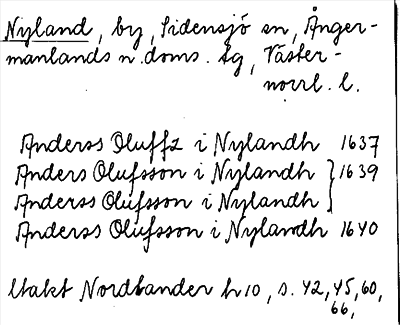 Nyland, by, Sidensjö sn, Ånger-
manlands n. doms. tg, Väster-
norrl. l.
Anderss Oluffz i Nylandh 1637
Anders Olufsson i Nylandh } 1639
Anderss Olufsson i Nylandh
Anderss Olufsson i Nylandh 1640
Utakt Nordlander h 10, s. 42, 45, 60,
66,